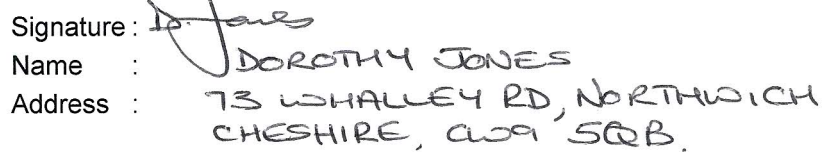 Signature : D. Jones
Name : DOROTHY JONES
Address : 73 WHALLEY RD, NORTHWICH
CHESHIRE, CW9 5QB.